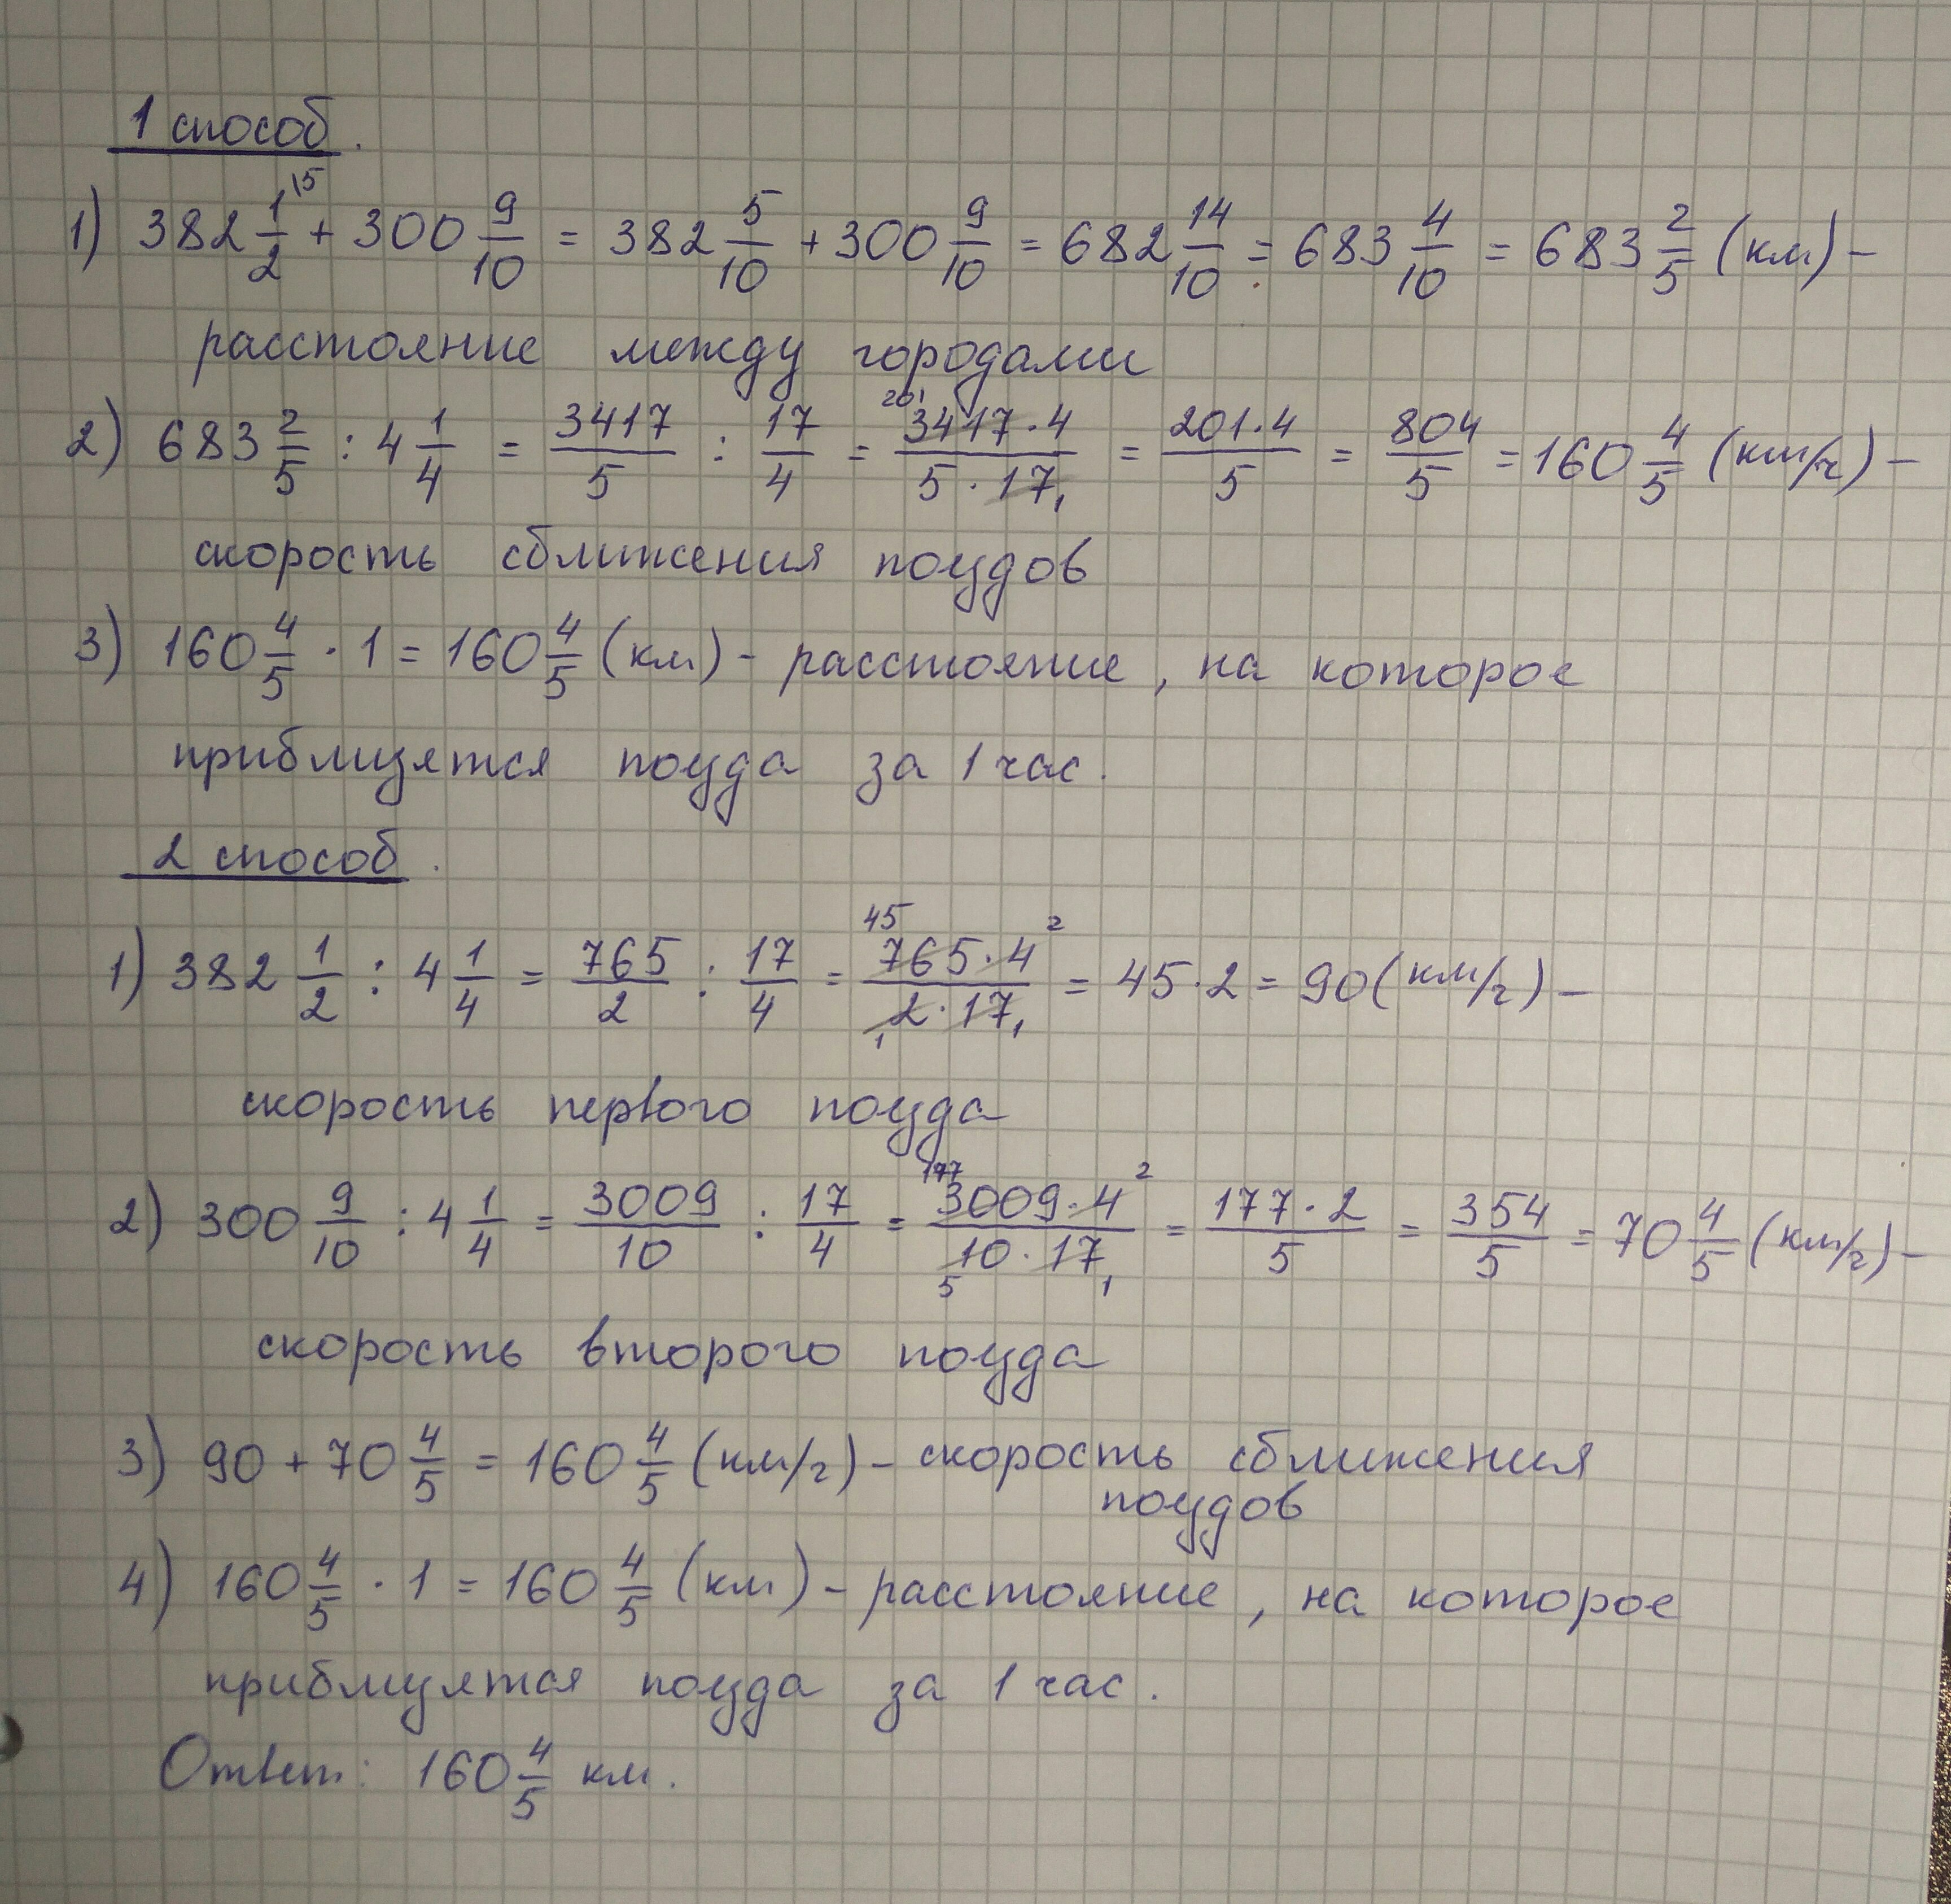 1 способ.
1) 382 1/2 \5 + 300 9/10 = 382 5/10 + 300 9/10 = 682 14/10 = 683 4/10 = 683 2/5 (км) –
расстояние между городами
2) 683 2/5 : 4 1/4 = 3417/5 : 17/4 = 201 3417·4/5·17 1 = 201·4/5 = 804/5 = 160 4/5 (км/ч) –
скорость сближения поездов
3) 160 4/5 · 1 = 160 4/5 (км) – расстояние, на которое
приблизятся поезда за 1 час.
2 способ.
1) 382 1/2 : 4 1/4 = 765/2 : 17/4 = 45 765·4 2/1 2·17 1 = 45·2 = 90 (км/ч) –
скорость первого поезда
2) 300 9/10 : 4 1/4 = 3009/10 : 17/4 = 177 3009·4 2/5 10·17 1 = 177·2/5 = 354/5 = 70 4/5 (км/ч) –
скорость второго поезда
3) 90 + 70 4/5 = 160 4/5 (км/ч) – скорость сближения
поездов
4) 160 4/5 · 1 = 160 4/5 (км) – расстояние, на которое
приблизятся поезда за 1 час.
Ответ: 160 4/5 км.